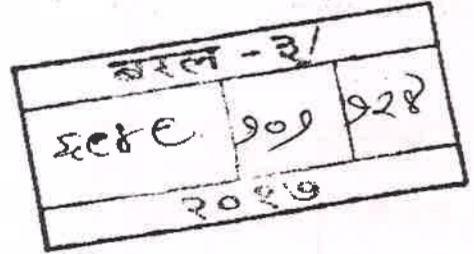 बरल - ३/
६९४९ १०१ १२४
२०१७